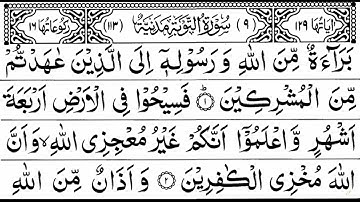 اٰيَاتُهَا ١٢٩ (٩) سُوْرَةُ التَّوْبَةِ مَدَنِيَّةٌ (١١٣) رُكُوْعَاتُهَا ١٦
بَرَآءَةٌ مِّنَ اللّٰهِ وَرَسُوْلِهٖٓ اِلَى الَّذِيْنَ عٰهَدْتُّمْ
مِّنَ الْمُشْرِكِيْنَ ١ فَسِيْحُوْا فِى الْاَرْضِ اَرْبَعَةَ
اَشْهُرٍ وَّاعْلَمُوْٓا اَنَّكُمْ غَيْرُ مُعْجِزِى اللّٰهِ ۙ وَاَنَّ
اللّٰهَ مُخْزِى الْكٰفِرِيْنَ ٢ وَاَذَانٌ مِّنَ اللّٰهِ